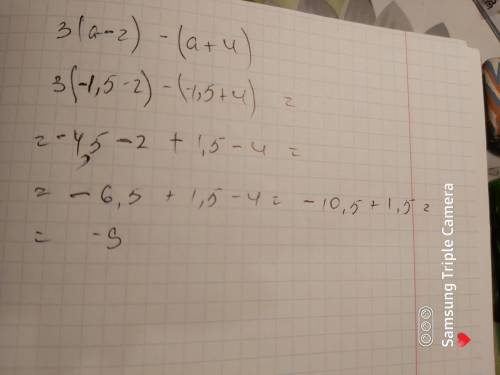 3(a-2) - (a+4)
3(-1,5-2) - (-1,5+4) =
= -4,5 - 2 + 1,5 - 4 =
= - 6,5 + 1,5 - 4 = -10,5 + 1,5 =
= -9
Samsung Triple Camera